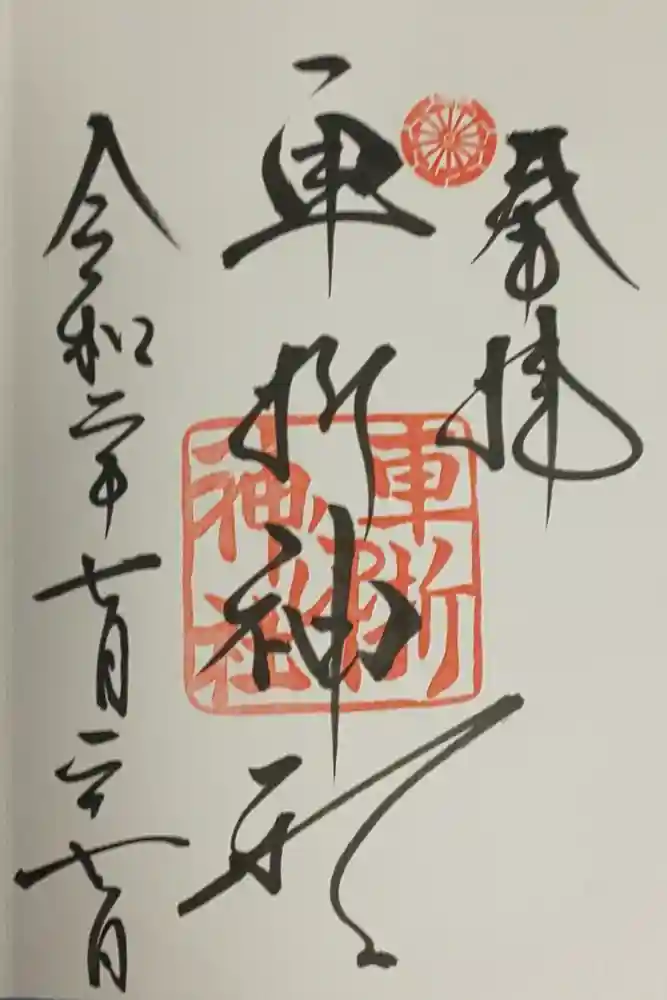 奉拝
車折神社
車折
神社
令和二年七月二十七日